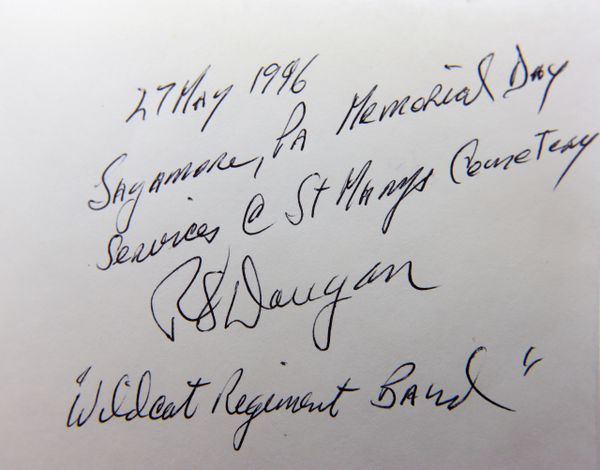 27 May 1996
Sagamore, PA Memorial Day
Services @ St Marys Cemetery
RS Dougan
"Wildcat Regiment Band"